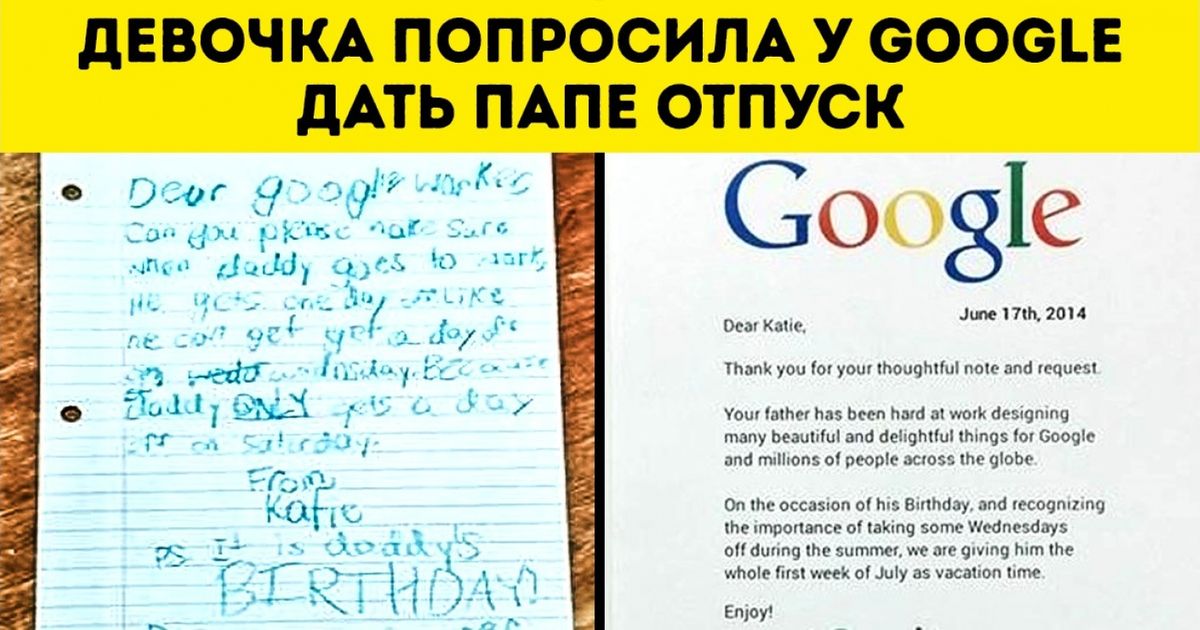 ДЕВОЧКА ПОПРОСИЛА У GOOGLE
ДАТЬ ПАПЕ ОТПУСК
Dear google worker
Can you please make sure
when daddy goes to work,
He gets one day off. Like
he can get get a day off
on wedn wednsday. Because
daddy ONLY gets a day
off on saturday.
From
Katie
PS It is daddy's
BIRTHDAY!
Google
June 17th, 2014
Dear Katie,
Thank you for your thoughtful note and request.
Your father has been hard at work designing
many beautiful and delightful things for Google
and millions of people across the globe.
On the occasion of his Birthday, and recognizing
the importance of taking some Wednesdays
off during the summer, we are giving him the
whole first week of July as vacation time.
Enjoy!